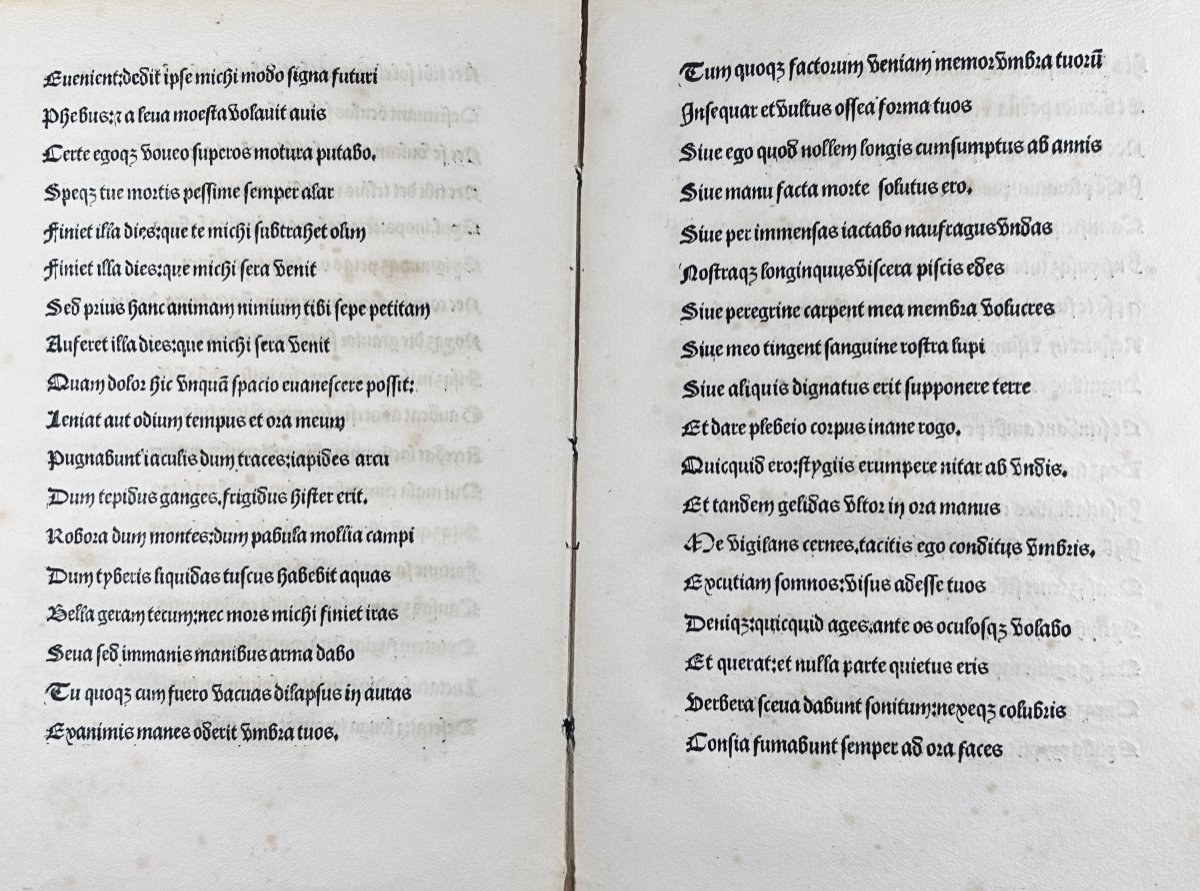 Euenient:dedit ipse michi modo signa futuri
Phebus:⁊ a leua moesta volauit auis
Certe egoqꝫ voueo superos motura putabo.
Speqꝫ tue mortis pessime semper alar
Finiet illa dies:que te michi subtrahet olim
Finiet illa dies:que michi sera venit
Sed prius hanc animam nimium tibi sepe petitam
Auferet illa dies:que michi sera venit
Quam dolor hic vnquã spacio euanescere possit:
Leniat aut odium tempus et ora meum
Pugnabunt iaculis dum traces:iapides arcu
Dum tepidus ganges.frigidus hister erit.
Robora dum montes:dum pabula mollia campi
Dum tyberis liquidas tuscus habebit aquas
Bella geram tecum:nec mors michi finiet iras
Seua sed immanis manibus arma dabo
Tu quoqꝫ cum fuero vacuas dilapsus in auras
Exanimis manes oderit vmbra tuos.
Tum quoqꝫ factorum veniam memor vmbra tuorũ
Insequar et vultus ossea forma tuos
Siue ego quod nollem longis cumsumptus ab annis
Siue manu facta morte solutus ero.
Siue per immensas iactabo naufragus vndas
Nostraqꝫ longinquus viscera piscis edes
Siue peregrine carpent mea membra volucres
Siue meo tingent sanguine rostra lupi
Siue aliquis dignatus erit supponere terre
Et dare plebeio corpus inane rogo.
Quicquid ero:stygiis erumpere nitar ab vndis.
Et tandem gelidas vltor in ora manus
Me vigilans cernes.tacitis ego conditus vmbris.
Excutiam somnos:visus adesse tuos
Deniqꝫ:quicquid ages:ante os oculosqꝫ volabo
Et querat:et nulla parte quietus eris
Verbera sceua dabunt sonitum:nexeqꝫ colubris
Consia fumabunt semper ad ora faces